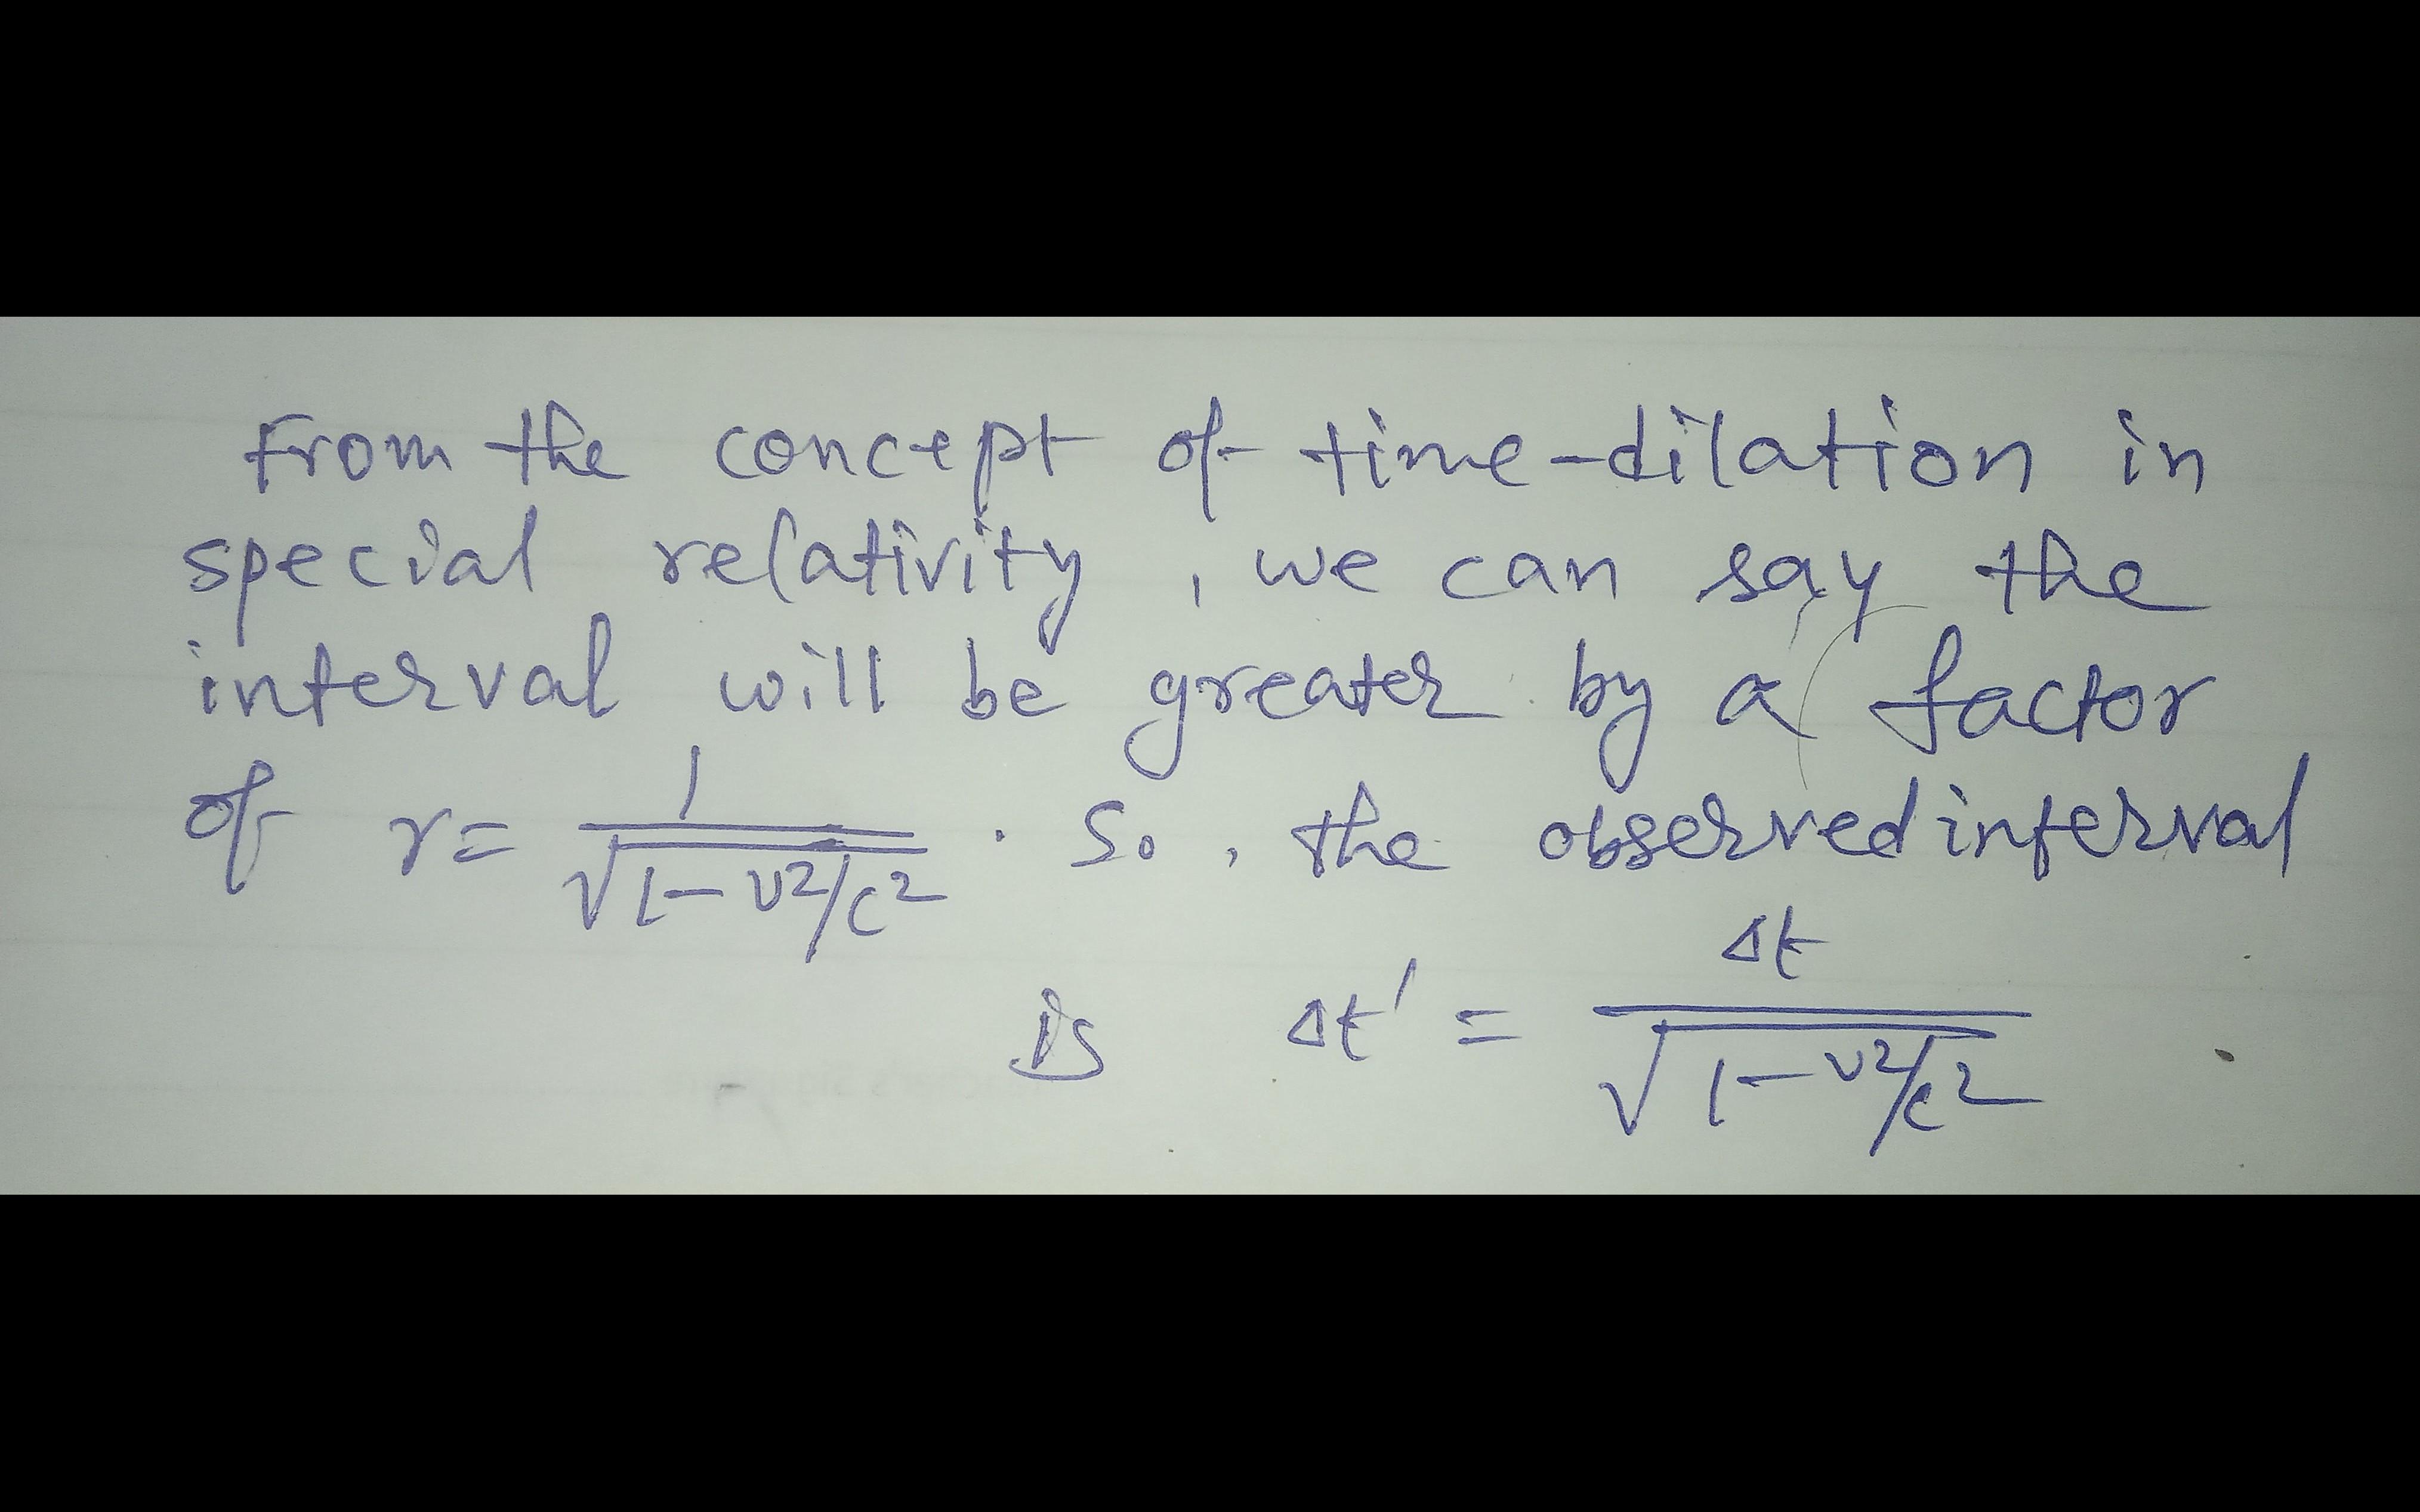 From the concept of time-dilation in
special relativity, we can say the
interval will be greater by a factor
of γ = 1/√(1 - v²/c²) . So, the observed interval
is Δt' = Δt/√(1 - v²/c²)